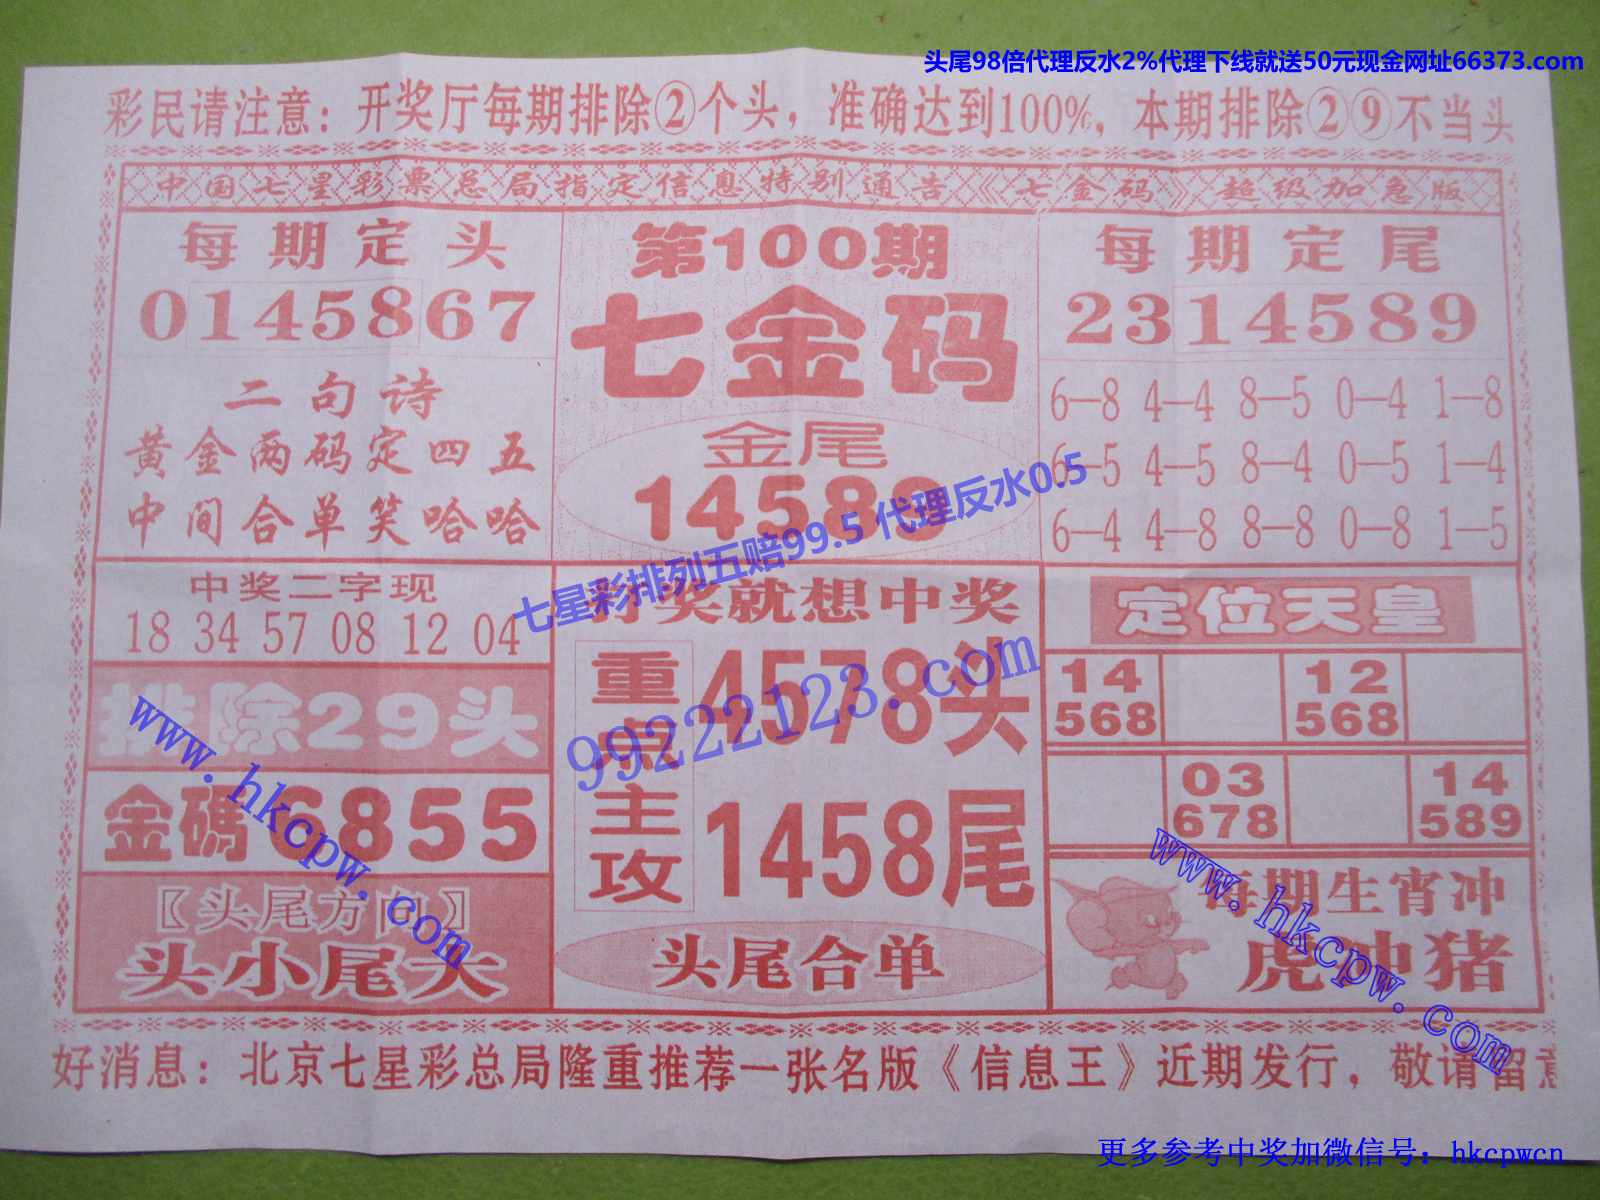 头尾98倍代理反水2%代理下线就送50元现金网址66373.com
彩民请注意：开奖厅每期排除②个头，准确达到100%，本期排除②⑨不当头
中国七星彩票总局指定信息特别通告《七金码》超级加急版
每期定头
0145867
二句诗
黄金两码定四五
中间合单笑哈哈
第100期
七金码
金尾
14589
每期定尾
2314589
6—8 4—4 8—5 0—4 1—8
6—5 4—5 8—4 0—5 1—4
6—4 4—8 8—8 0—8 1—5
七星彩排列五赔99.5 代理反水0.5
99222123.com
中奖二字现
18 34 57 08 12 04
排除29头
金碼6855
〖头尾方向〗
头小尾大
www.hkcpw.com
奖就想中奖
重点
4578头
主攻
1458尾
头尾合单
定位天皇
14 12
568 568
03 14
678 589
每期生宵冲
虎冲猪
www.hkcpw.com
好消息：北京七星彩总局隆重推荐一张名版《信息王》近期发行，敬请留意
更多参考中奖加微信号：hkcpwcn